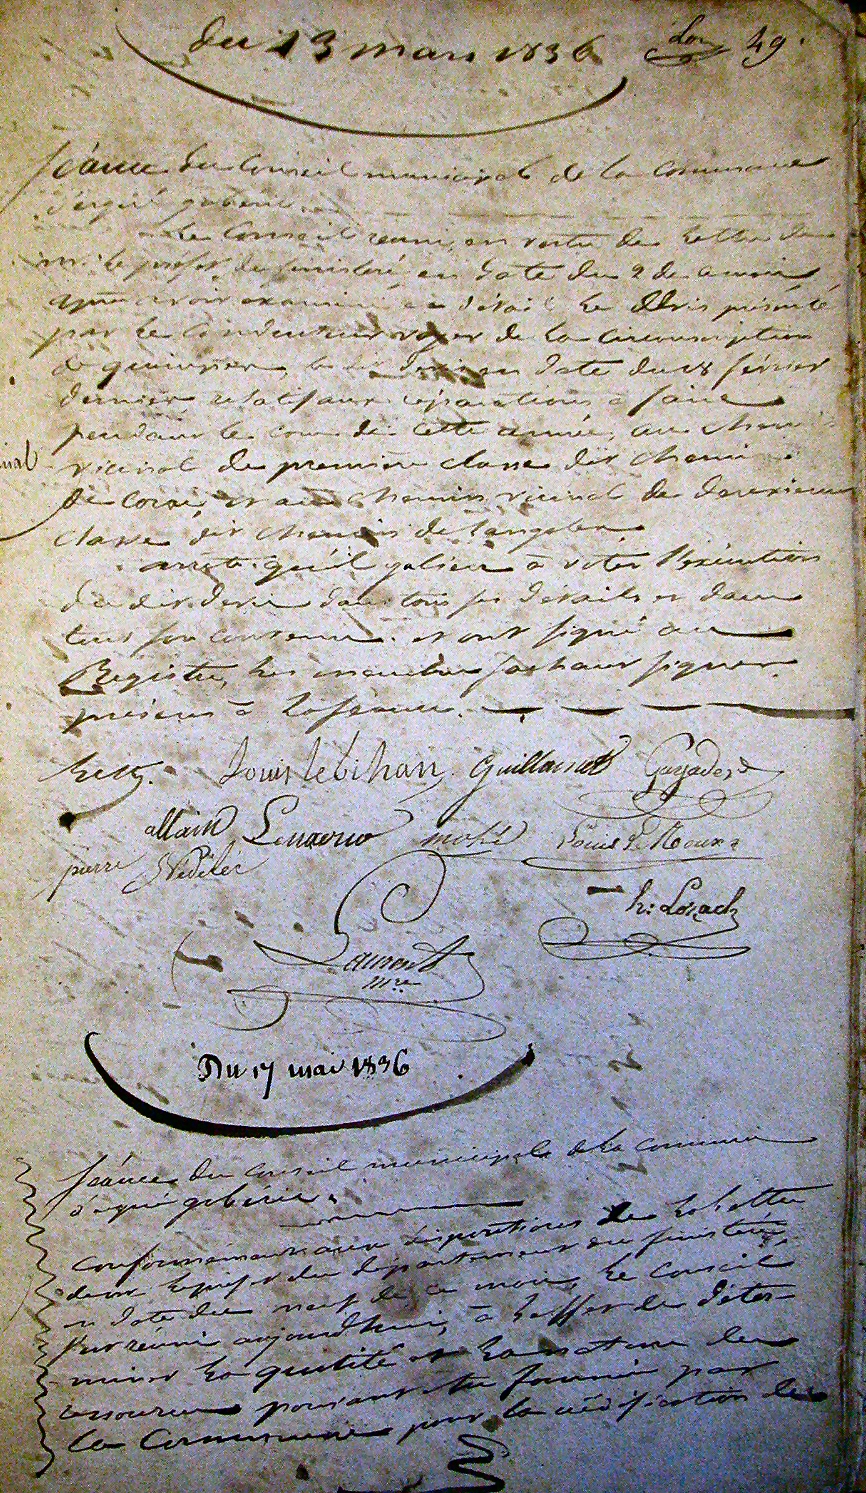 du 13 mars 1836
49.
Séance du Conseil municipal de la Commune
d'ergué gaberic.
Le Conseil réuni, en vertu de lettre de
m. le préfet du finistère, en date du 2 de ce mois
après avoir examiné en détail le devis présenté
par le Conducteur voyer de la circonscription
de quimper, le dit devis en date du 18 février
dernier, relatif aux réparations à faire
pendant le cour de cette année, au chemin
vicinal de première classe dit chemin
de Corai, et au chemin vicinal de deuxieme
classe dit chemin de
arrete qu'il y a lieu à voter l'exécution
du dit devis dans tous ses détails et dans
tout son contenu. et ont signé au
Registre, les membres sachant signer
présens à la séance.
Louis le bihan Guillamet
allain Lennervo mahé
pierre Nédélec
h: Lozach
Laurent
mre
Du 17 mai 1836
Séance du Conseil municipale de la commune
d'ergué gaberic.
Conformément aux dispositions de la lettre
de mr le préfet du département du finistère,
en date du neuf de ce mois, le Conseil
s'est réuni aujourdhui, à l'effet de déter-
miner la quotité et la nature des
ressources pouvant etre fournie par
la Commune pour la